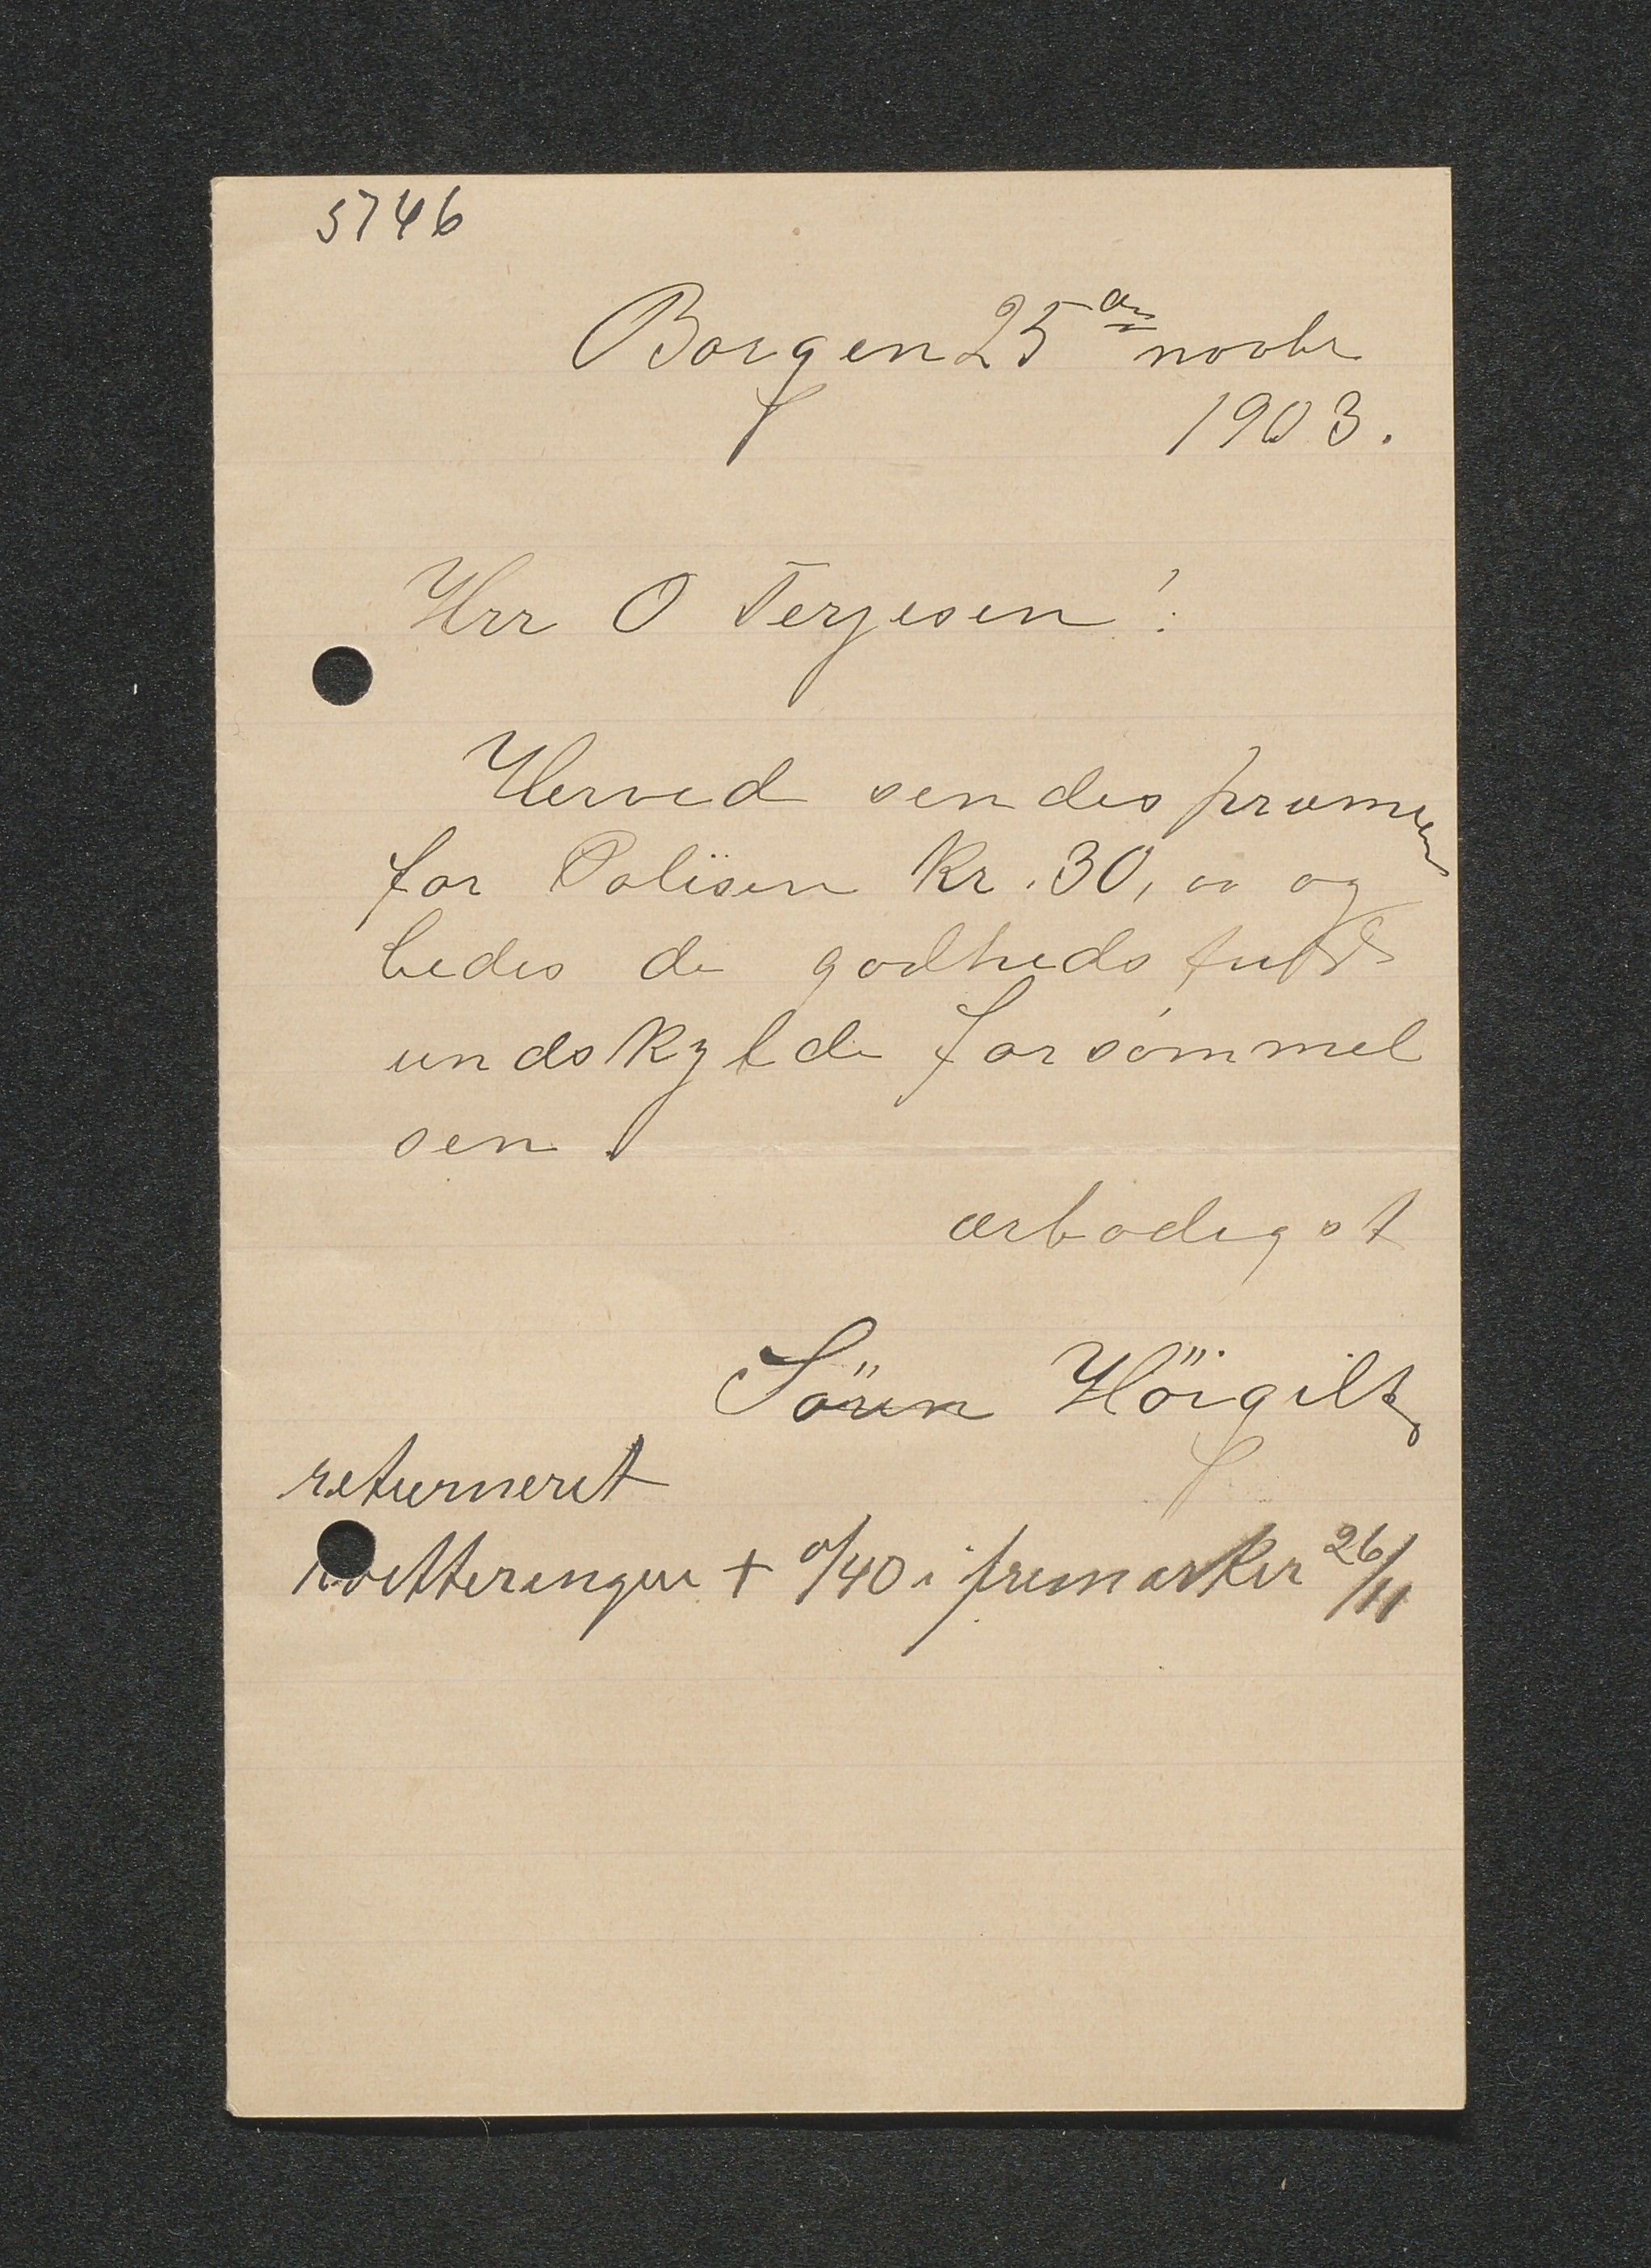 5746
Borgen 25 de novbr
1903.
Hrr O Terjesen!
Herved sendes præmien
for Polisen Kr. 30, 00 og
bedes de godheds fuldt
undskylde forsömmel
sen.
ærbødigst
Sören Höigilt
returneret
kvitteringen + 0/40 i frimærker 26/11